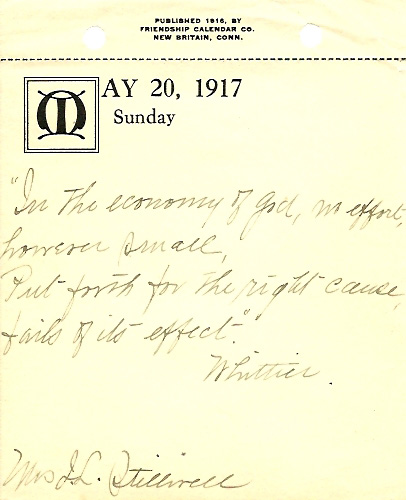 PUBLISHED 1916, BY
FRIENDSHIP CALENDAR CO.
NEW BRITAIN, CONN.
MAY 20, 1917
Sunday
"In the economy of God, no effort,
however small,
Put forth for the right cause,
fails of its effect".
Whittier.
Mrs J. L. Stilliwell